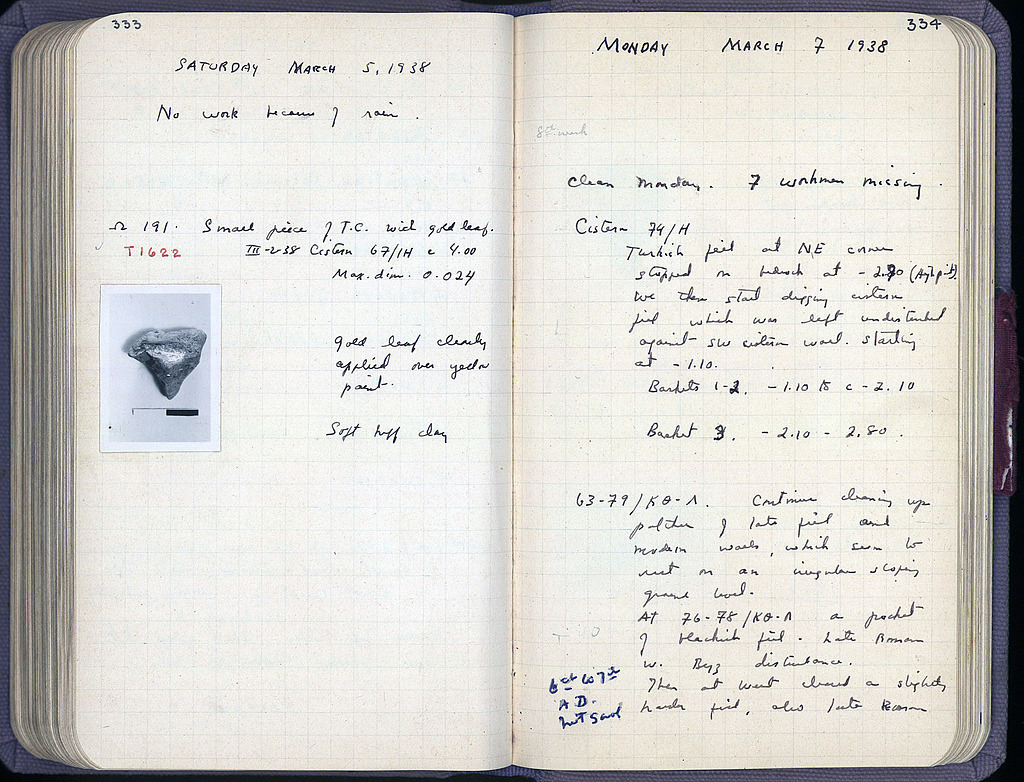 333
SATURDAY MARCH 5, 1938
No work because of rain.
Ω 191. Small piece of T.C. with gold leaf.
T1622
III-2-38 Cistern 67/IH c 4.00
Max. dim. 0.024
Gold leaf clearly
applied over yellow
paint.
Soft buff clay
334
MONDAY MARCH 7 1938
8th week
Clean Monday. 7 workmen missing.
Cistern 74/H
Turkish fill at NE corner
stopped on bedrock at -2.90
We then start digging cistern
fill which was left undisturbed
against SW cistern wall. starting
at -1.10.
Baskets 1-2. -1.10 to c -2.10
Basket 3. -2.10 - 2.80.
63-79/ΚΘ-Λ. Continue cleaning up
patches of late fill and
modern walls, which seem to
rest on an irregular sloping
ground level.
At 76-78/ΚΘ-Λ a pocket
of blackish fill. Late Roman
w. Byz disturbance.
Then at west cleared a slightly
harder fill, also late Roman
6th to 7th
A.D.
not saved